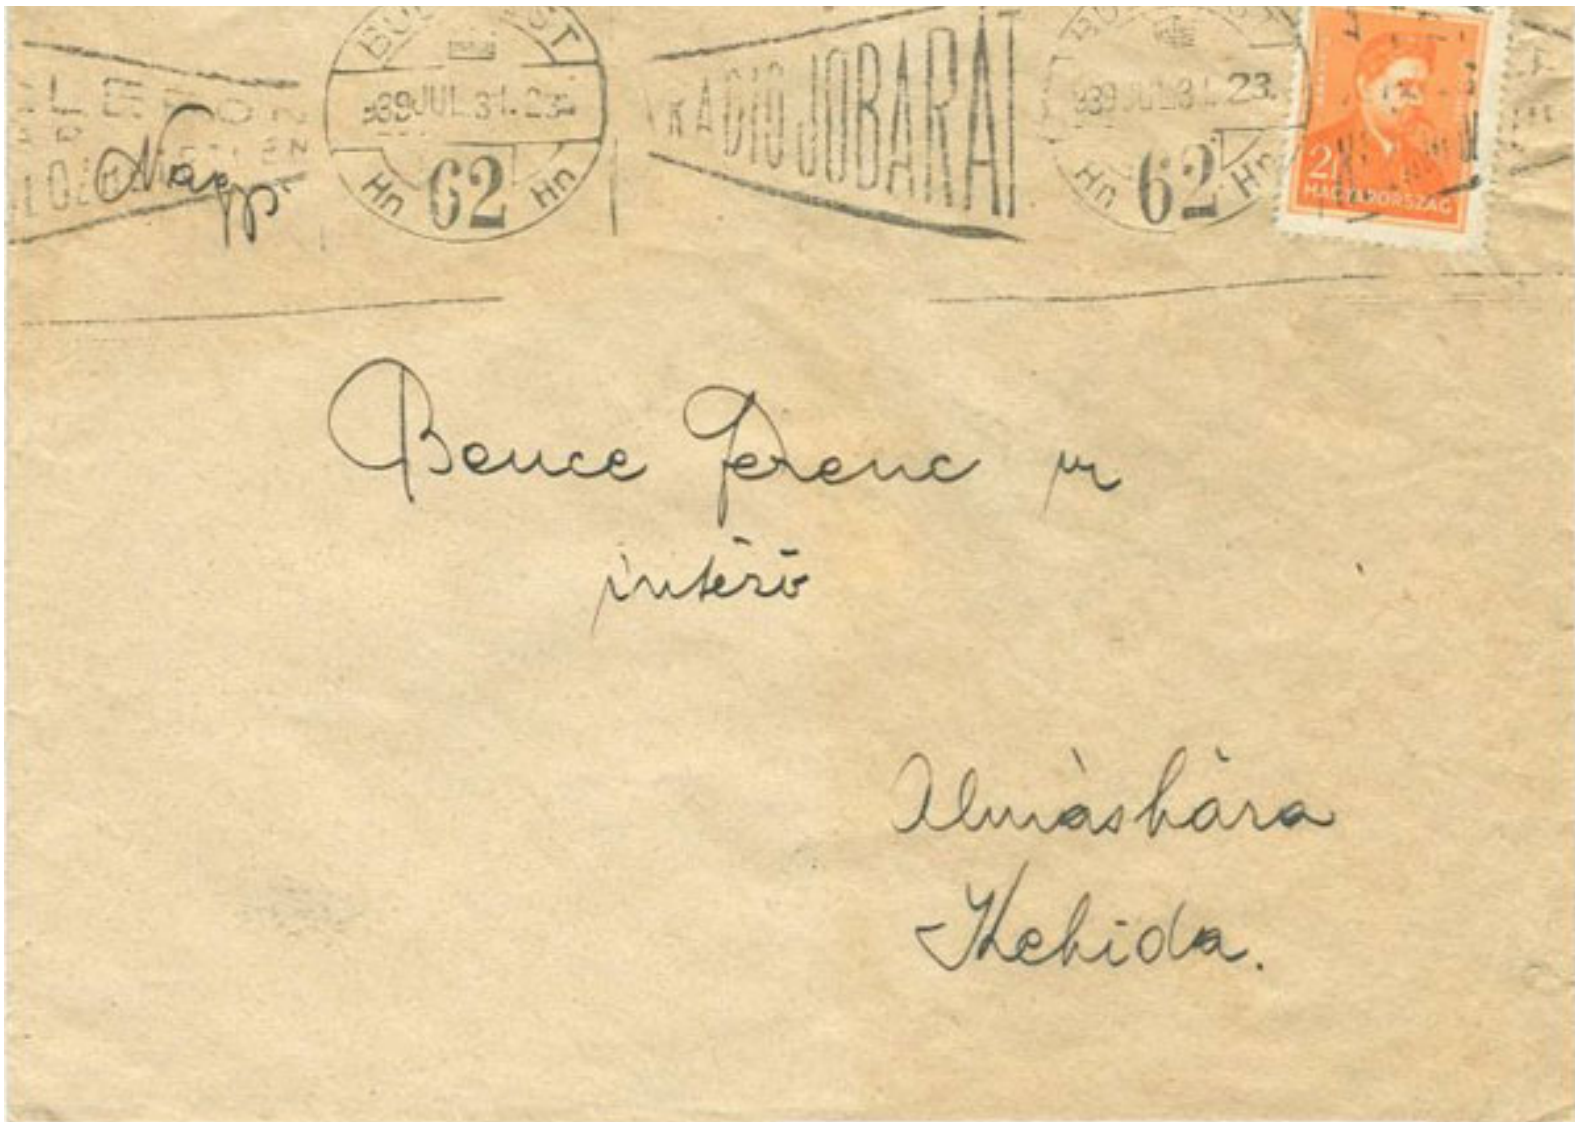 BUDAPEST
939 JUL. 31. 23
Hn 62 Hn
RADIO JOBARAT
BUDAPEST
939 JUL 31. 23.
Hn 62 Hn
2f
MAGYARORSZÁG
Nagy
Bence Ferenc ur
intéző
Almásháza
Kehida.